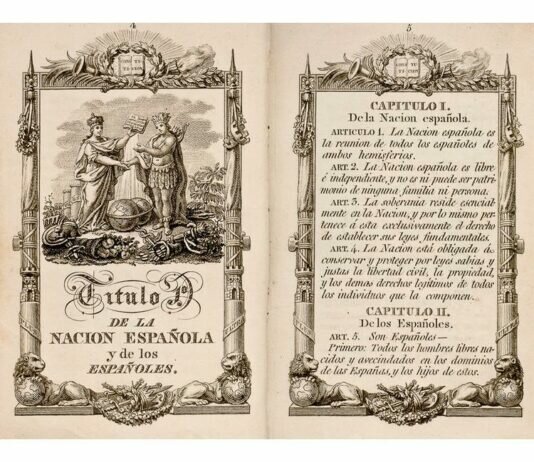 4
CONS TI
TU CION
Titulo 1º
DE LA
NACION ESPAÑOLA
y de los
ESPAÑOLES.
5
CONS TI
TU CION
CAPITULO I.
De la Nacion española.
ARTICULO 1. La Nacion española es
la reunion de todos los españoles de
ambos hemisferios.
ART. 2. La Nacion española es libre
é independiente, y no es ni puede ser patri-
monio de ninguna familia ni persona.
ART. 3. La soberania reside esencial
mente en la Nacion, y por lo mismo per-
tenece á esta esclusivamente el derecho
de establecer sus leyes fundamentales.
ART. 4. La Nacion está obligada á
conservar y proteger por leyes sabias y
justas la libertad civil, la propiedad,
y los demas derechos legitimos de todos
los individuos que la componen.
CAPITULO II.
De los Españoles.
ART. 5. Son Españoles—
Primero: Todos los hombres libres na-
cidos y avecindados en los dominios
de las Españas, y los hijos de estos.